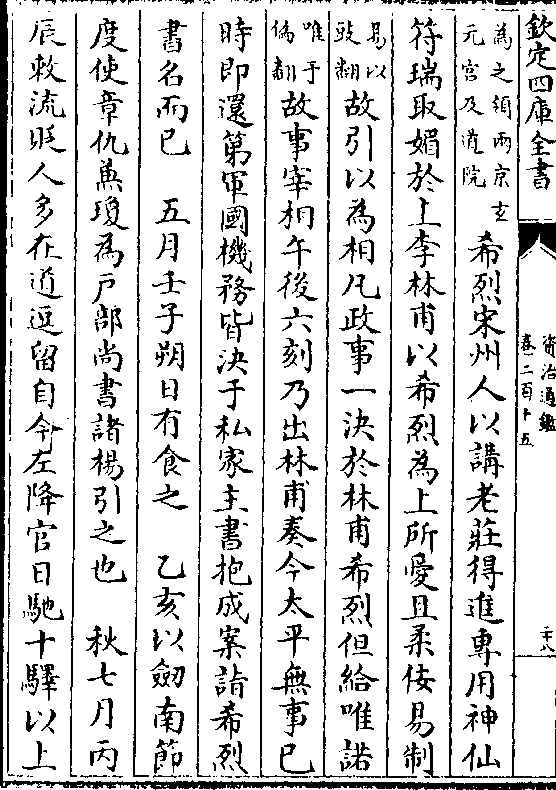 欽定四庫全書
資治通鑑
卷二百十五
二十八
為之領兩京玄
元宫及道院
希烈宋州人以講老莊得進專用神仙
符瑞取媚於上李林甫以希烈為上所愛且柔佞易制
易以
豉翻
故引以為相凡政事一決於林甫希烈但給唯諾
唯于
偽翻
故事宰相午後六刻乃出林甫奏今太平無事巳
時即還第軍國機務皆決于私家主書抱成案詣希烈
書名而已　五月壬子朔日有食之　乙亥以劒南節
度使章仇兼瓊為戶部尚書諸楊引之也　秋七月丙
辰敕流貶人多在道逗留自今左降官日馳十驛以上